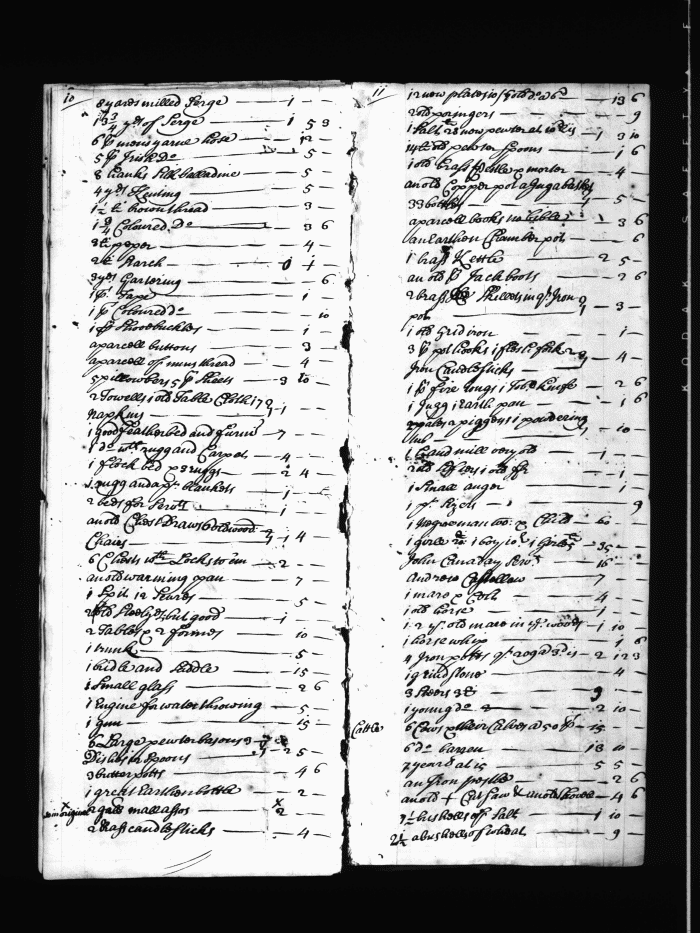 10
8 yards milled Serge — 1 — —
13 3/4 yds of Serge — 1 5 3
6 pr mens yarne hose — 12 —
5 pr Irish Do — 5 —
8 hanks Silk — 5 —
4 yds — 5 —
1 1/2 lb brown thread — 3 —
1 3/4 Coloured Do — 3 6
3 lb peper — 4 —
2 lb Starch — 1 —
3 yds Gartering — 6
1 ps Tape — 1 —
1 ps Coloured do — 10
1 pr Shooebuckles — 1
a parcell buttons — 3 —
a parcell of mens thread — 4 —
5 pillowbers 5 pr Sheets — 3 10 —
2 Towells 1 old Table Cloth 17
Napkins — 1 —
1 good Featherbed and furnr — 7 —
1 do wth rugg and Carpet — 4 — —
1 flock bed & 2 ruggs — 2 4
1 rugg and a pr blankets — 1 —
2 beds for Servts — 1
an old Chest Draws 6 old wood
Chairs — 1 4
6 Chests wth Locks to 'em — 2 — —
an old warming pan — 7
1 Spit — 5 —
but good — 1 —
2 Tables & 2 formes — 10
1 trunk — 5 —
1 bridle and Saddle — 15 —
1 Small glass — 2 6
1 Engine for water throwing — 5 —
1 gun — 15 —
6 Large pewter basons 3
Dishes Spoons — 2 5 —
3 butter potts — 4 6
1 great Earthen bottle — 2 —
x 2 galls mallasses — x 2 —
in original
2 brass candlesticks — 4 —
11
12 new plates — 13 6
2 old poringers — 9
1 Salt 28 new pewter at — 1 3 10
14 old pewter spoons — 1 6
1 old brass Kettle & morter — 4 —
an old Copper pot a Jug a basket
33 bottles — 5 —
a parcell books — 3 6
an Earthen Chamber pot — 6
1 brass Kettle — 2 5 —
an old pr Jack boots — 2 6
2 brass Skillets Iron
pott — 1 3 —
1 old Gridiron — 1 —
3 pr pot hooks 1 flesh fork 2
Iron Candlesticks — 4 —
1 pr fire tongs — 2 6
1 Jugg 1 Earth pan — 1 6
2 pales a piggin 1 powdering
tub — 10 —
1 hand mill very old — 1 —
2 old — 1 —
1 Small auger — 1
1 — 9
1 Negroe woman & Child — 60 —
1 girle 1 boy — 35 —
John Canaday Servt — 16
Andrew — 7
1 mare & Colt — 4 —
1 old horse — 1 —
1 2 yr old mare in ye woods — 1 10 —
1 horse whip — 1 6
4 Iron potts — 2 12 3
1 grindstone — 4 —
3 Steers — 9 —
1 young do — 2 10 —
Cattle
6 Cows & their Calves a 50 — 15 —
6 do barren — 13 10
7 yeard at 15 — 5 5 —
an Iron pestle — 2 6
an old + Cut Saw & an old — 4 6
7 1/2 bushells of Salt — 1 10 —
2 1/2 bushells of wheat — 9 —